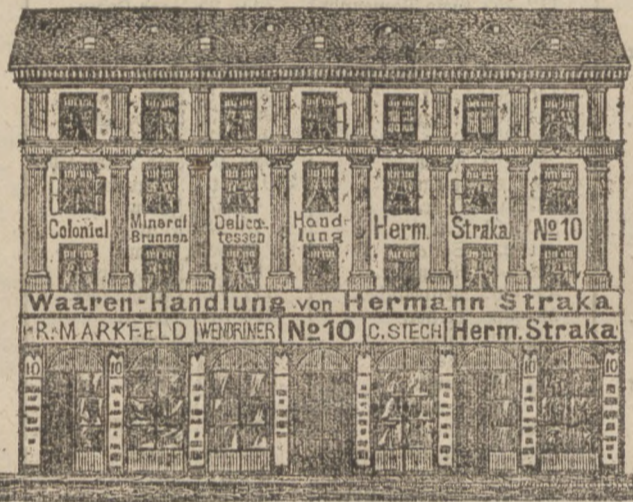 Colonial Mineral Brunnen Delicatessen Handlung Herm. Straka No 10
Waaren-Handlung von Hermann Straka
R. MARKFELD WENDRINER No 10 C. STECH Herm. Straka
10 10 10 10